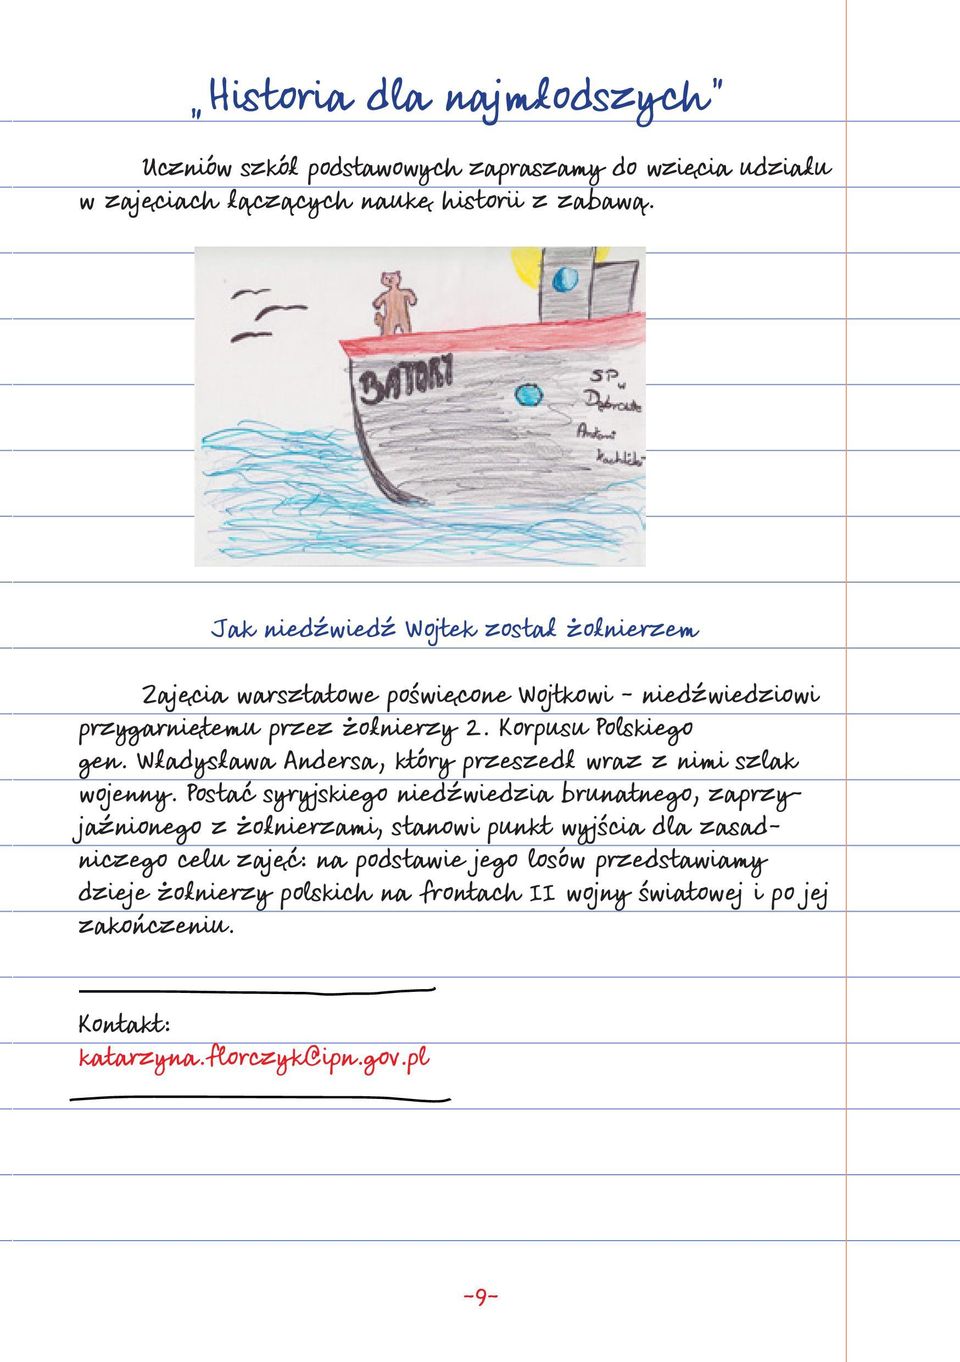 „Historia dla najmłodszych”
Uczniów szkół podstawowych zapraszamy do wzięcia udziału
w zajęciach łączących naukę historii z zabawą.
BATORY
SP w
Dąbrowie
Antoni
Jak niedźwiedź Wojtek został żołnierzem
Zajęcia warsztatowe poświęcone Wojtkowi - niedźwiedziowi
przygarniętemu przez żołnierzy 2. Korpusu Polskiego
gen. Władysława Andersa, który przeszedł wraz z nimi szlak
wojenny. Postać syryjskiego niedźwiedzia brunatnego, zaprzy-
jaźnionego z żołnierzami, stanowi punkt wyjścia dla zasad-
niczego celu zajęć: na podstawie jego losów przedstawiamy
dzieje żołnierzy polskich na frontach II wojny światowej i po jej
zakończeniu.
Kontakt:
katarzyna.florczyk@ipn.gov.pl
-9-